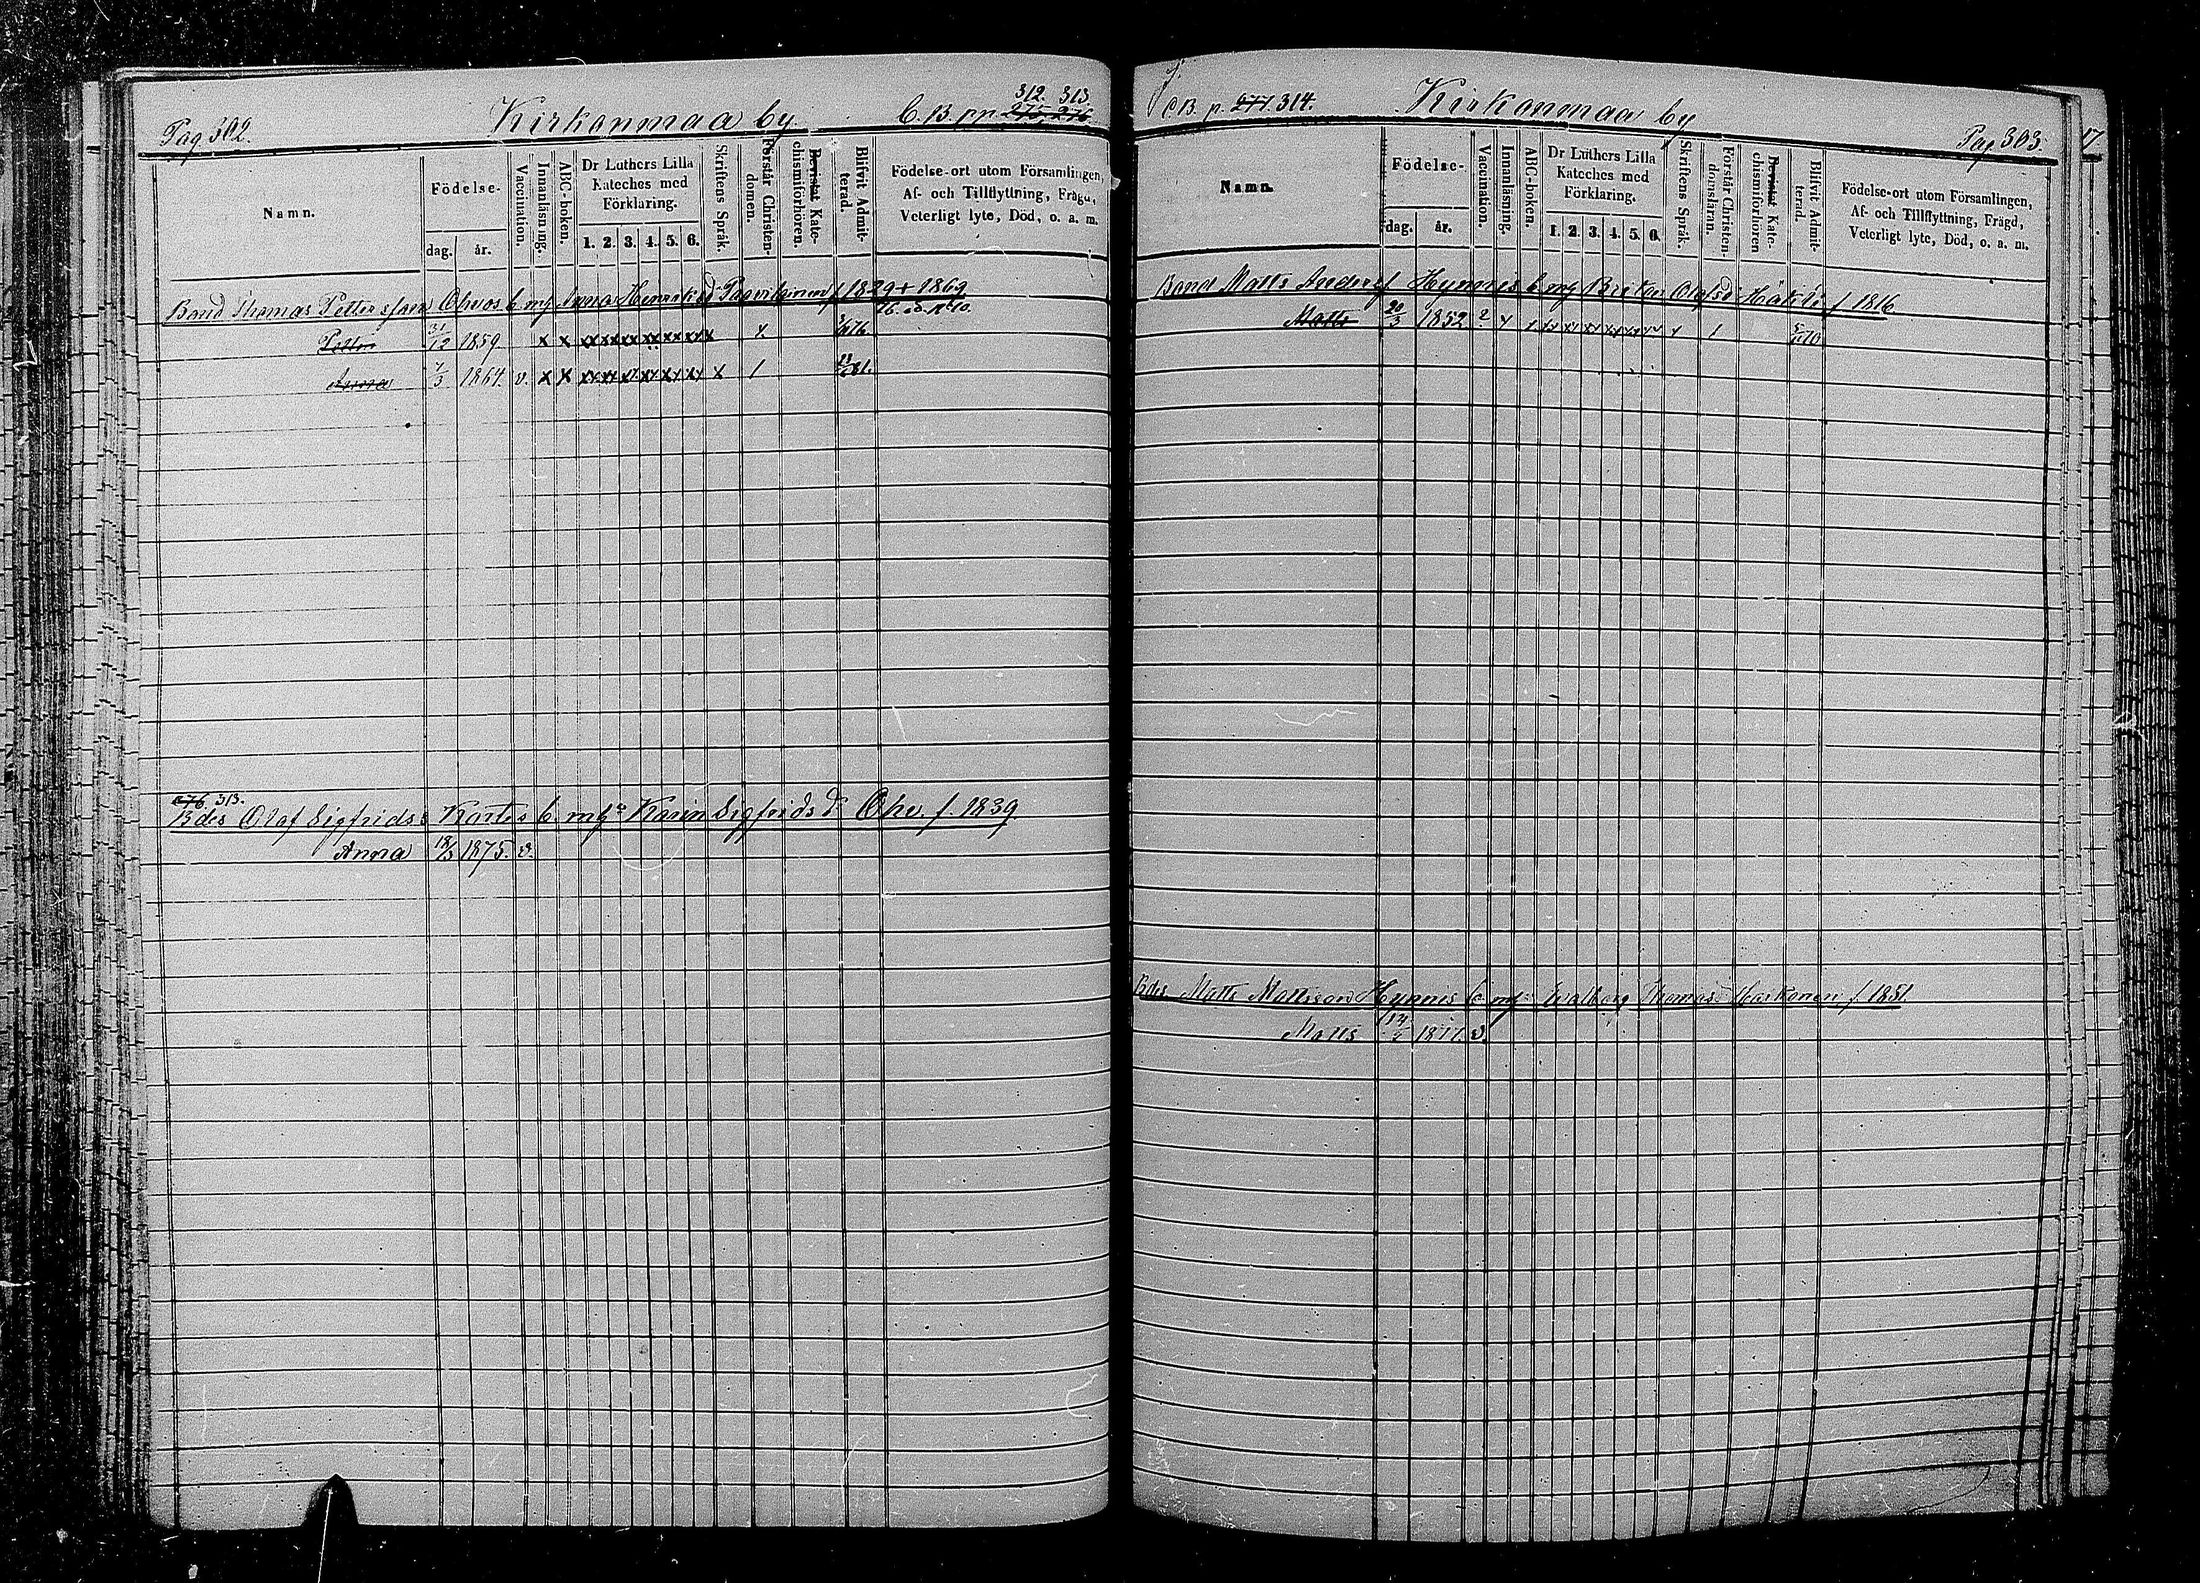 Pag. 302.
Kirkonmaa by
C. B. pp.
312. 313.
275 276
Namn.
Födelse-
dag. år.
Vaccination.
Innanläsning.
ABC-boken.
Dr Luthers Lilla
Kateches med
Förklaring.
1. 2. 3. 4. 5. 6.
Skriftens Språk.
Förstår Christen-
domen.
Bevistat Kate-
chismiförhören.
Blifvit Admit-
terad.
Födelse-ort utom Församlingen,
Af- och Tillflyttning, Frägd,
Veterligt lyte, Död, o. a. m.
Bond Thomas Petters son Ohvos b. mg Anna Henriksd. f 1829 + 1869
Petter 31/12 1859 x x xx xx xx xx xx xx x x. 76.
Anna 7/3 1864. v. x x xx xx xx xx xx xx x 1 81.
276. 313.
Bdes Olaf Sigfrids s. Kortes b. mg Karin Sigfrids d. Ohv. f. 1839
Anna 18/3 1875. v.
C.B. p. 277. 314.
Kirkonmaa by
Pag 303.
17
Namn.
Födelse-
dag. år.
Vaccination.
Innanläsning.
ABC-boken.
Dr Luthers Lilla
Kateches med
Förklaring.
1. 2. 3. 4. 5. 6.
Skriftens Språk.
Förstår Christen-
domsläran.
Bevistat Kate-
chismiförhören
Blifvit Admit-
terad.
Födelse-ort utom Församlingen,
Af- och Tillflyttning, Frägd,
Veterligt lyte, Död, o. a. m.
Bond Matts Anders Hynnis b. mg Brita Olofsd. f 1816
Matts 20/3 1852 70
Bdes Matts Mattsson Hynnis b. mg Walborg Thomasd. f. 1851.
Matts 1877. v.